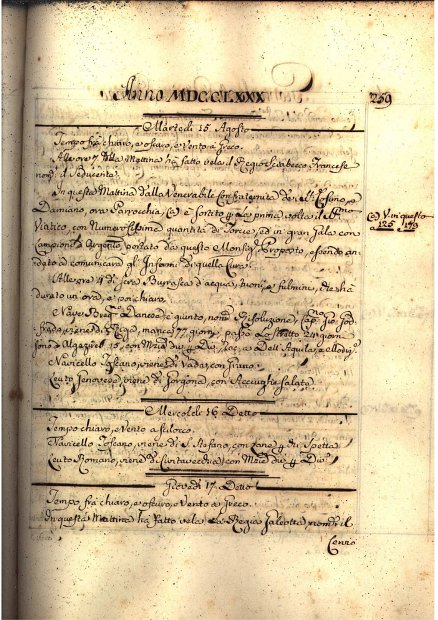 Anno MDCCLXXX
259
Martedi 15 Agosto
Tempo frà chiaro, e oscuro, e Vento a Greco.
Alle ore 7 della Mattina hà fatto vela il Regio Sciabecco Francese
nom.º il Seducente.
In questa Mattina dalla Venerabile Confraternita de SS. Cosimo, e
Damiano, ora Parrocchia, (a) è sortito p la prima volta il SS.mo
Viatico, con Numerosissima quantità di Torce, ed in gran Gala con
Campione d'Argento, portato da questo Monsig.r Proposto, essendo an-
dato a comunicare gl'Infermi di quella Cura.
(a) V. in questo
a 126 173
Alle ore 4 di sera Burrasca d'acqua, tuoni, e fulmini, che hà
durato un'ora, e poi chiaro.
Nave Danese
viene di manca 77 giorni, passò lo Stretto 24 giorni
sono
Navicello Toscano, viene di Vada, con Grano.
Leuto Genovese, viene di Gorgona, con Acciughe salate.
Mercoledi 16 Detto
Tempo chiaro, Vento a scilocco.
Navicello Toscano, viene di S. Stefano, con Lane, p di Spetta
Leuto Romano, viene di Civitavecchia, con Merci di p Div.i
Giovedi 17 Detto
Tempo frà chiaro, e oscuro, e Vento a Greco.
In questa Mattina hà fatto vela la Regia Galeotta nom.ª il
Cervio